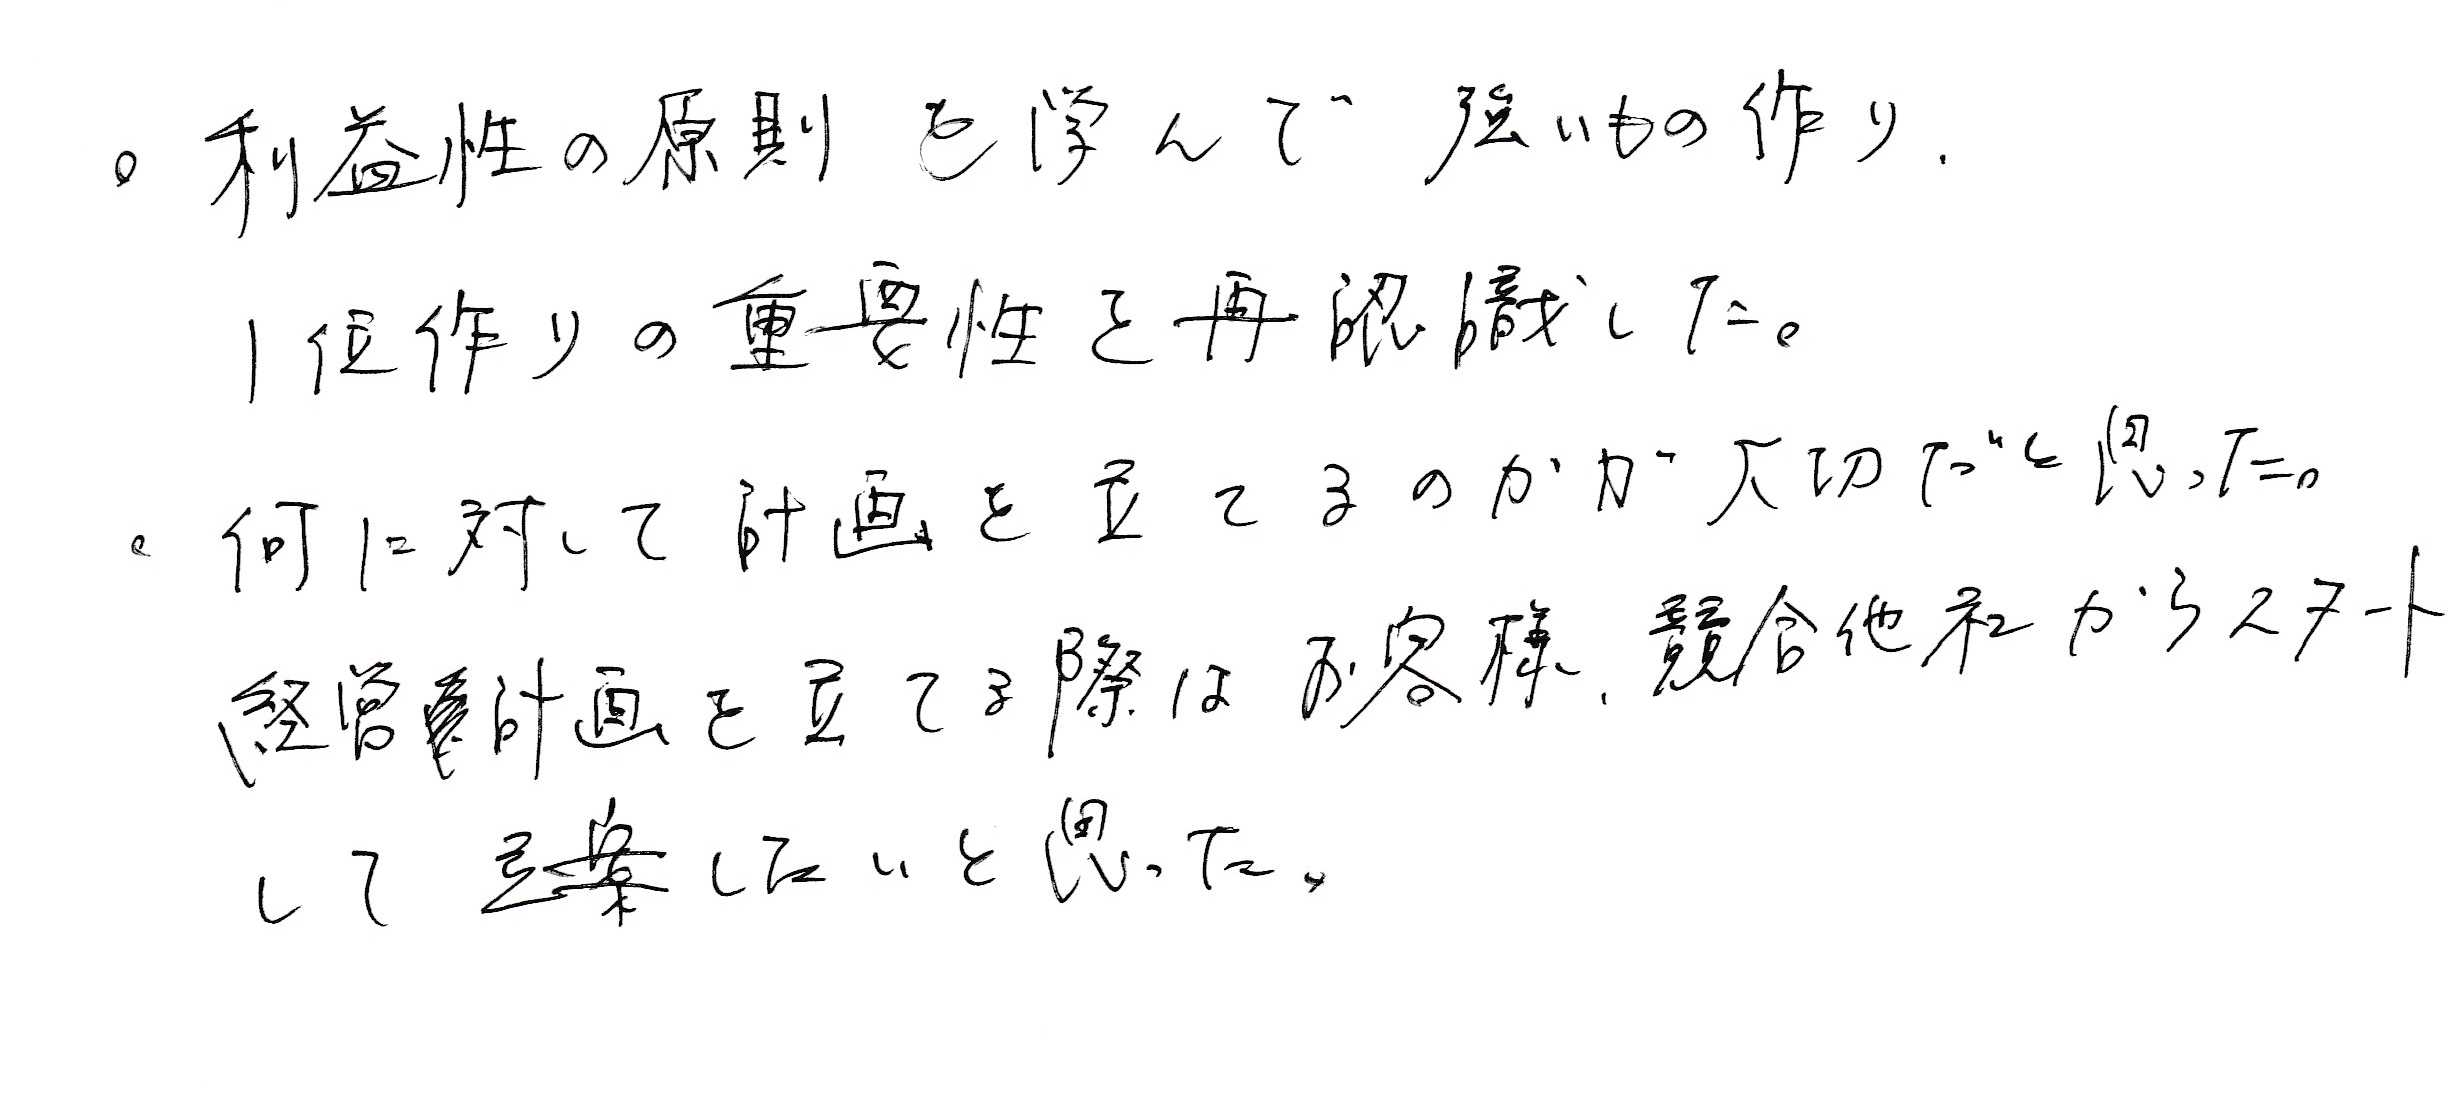 。利益性の原則を学んで強いもの作り、
1位作りの重要性を再認識した。
・何に対して計画を立てるのかが大切だと思った。
経営計画を立てる際はお客様、競合他社からスタート
して立案したいと思った。